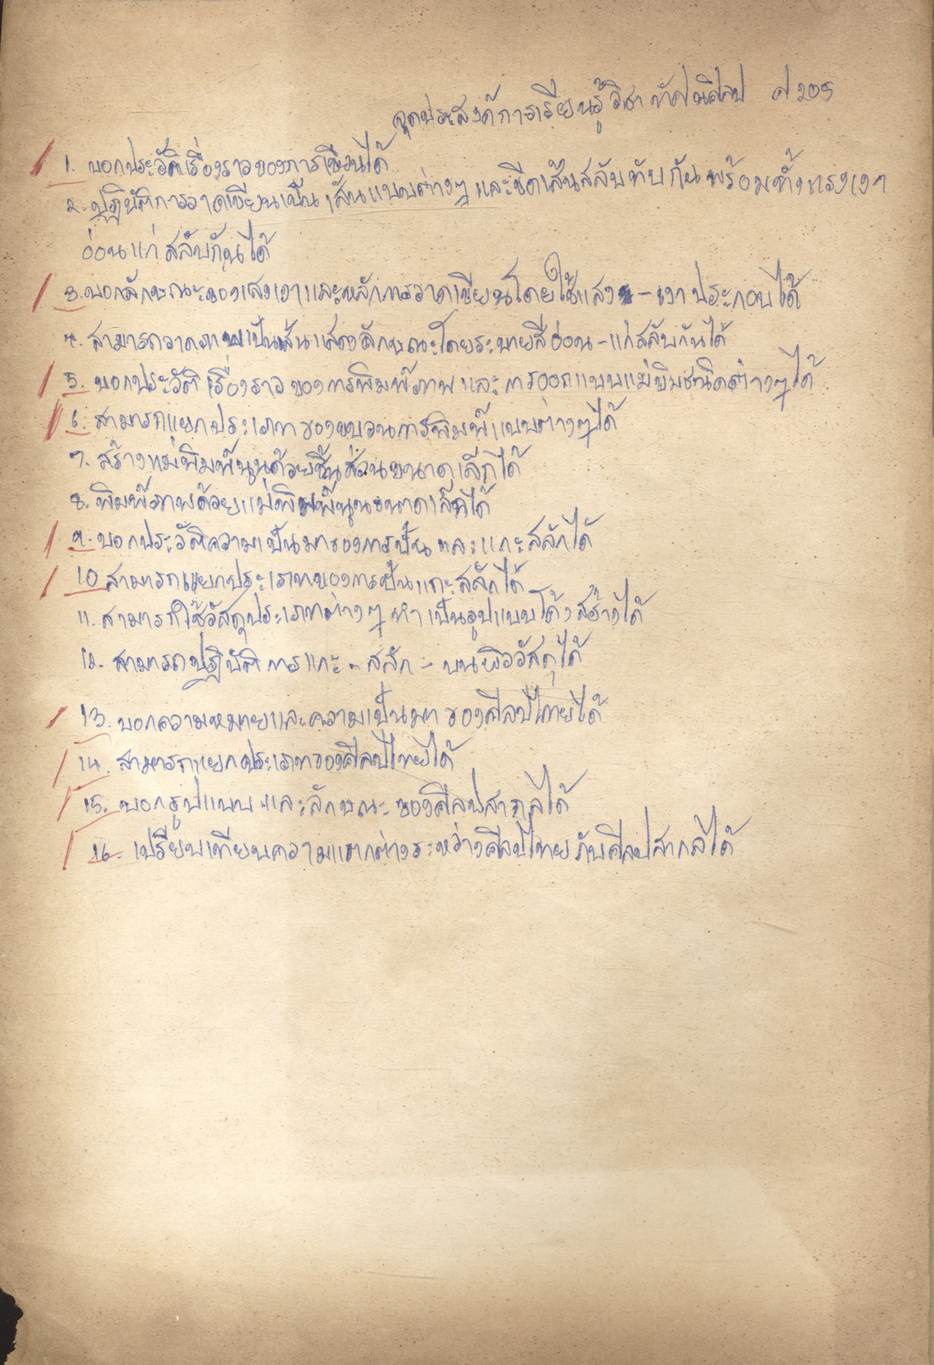 จุดประสงค์การเรียนรู้วิชา ทัศนศิลป ศ 205
1. บอกประวัติเรื่องราวของการเขียนได้
2. ปฏิบัติการวาดเขียนเป็น เส้นแบบต่างๆ และขีดเส้นสลับทับกันพร้อมทั้งแรงเงา
อ่อนแก่ สลับกันได้
3. บอกลักษณะของแสงเงาและหลักการวาดเขียนโดยใช้แสง - เงา ประกอบได้
4. สามารถวาดภาพเป็นเส้นแสดงลักษณะโดยระบายสีอ่อน - แก่สลับกันได้
5. บอกประวัติ เรื่องราวของการพิมพ์ภาพและการออกแบบแม่พิมพ์ชนิดต่างๆได้
6. สามารถแยกประเภทของขบวนการพิมพ์แบบต่างๆได้
7. สร้างแม่พิมพ์นูนด้วยชิ้นส่วนขนาดเล็กได้
8. พิมพ์ภาพด้วยแม่พิมพ์นูนขนาดเล็กได้
9. บอกประวัติความเป็นมาของการปั้น และแกะสลักได้
10 สามารถแยกประเภทของการปั้นแกะสลักได้
11. สามารถใช้วัสดุประเภทต่างๆ ทำ เป็นรูปแบบโครงสร้างได้
12. สามารถปฏิบัติ การแกะ - สลัก - บนผิววัสดุได้
13. บอกความหมายและความเป็นมา ของศิลปไทยได้
14. สามารถแยกประเภทของศิลปไทยได้
15. บอกรูปแบบ และลักษณะ ของศิลปสากลได้
16. เปรียบเทียบความแตกต่างระหว่างศิลปไทย กับศิลปสากลได้